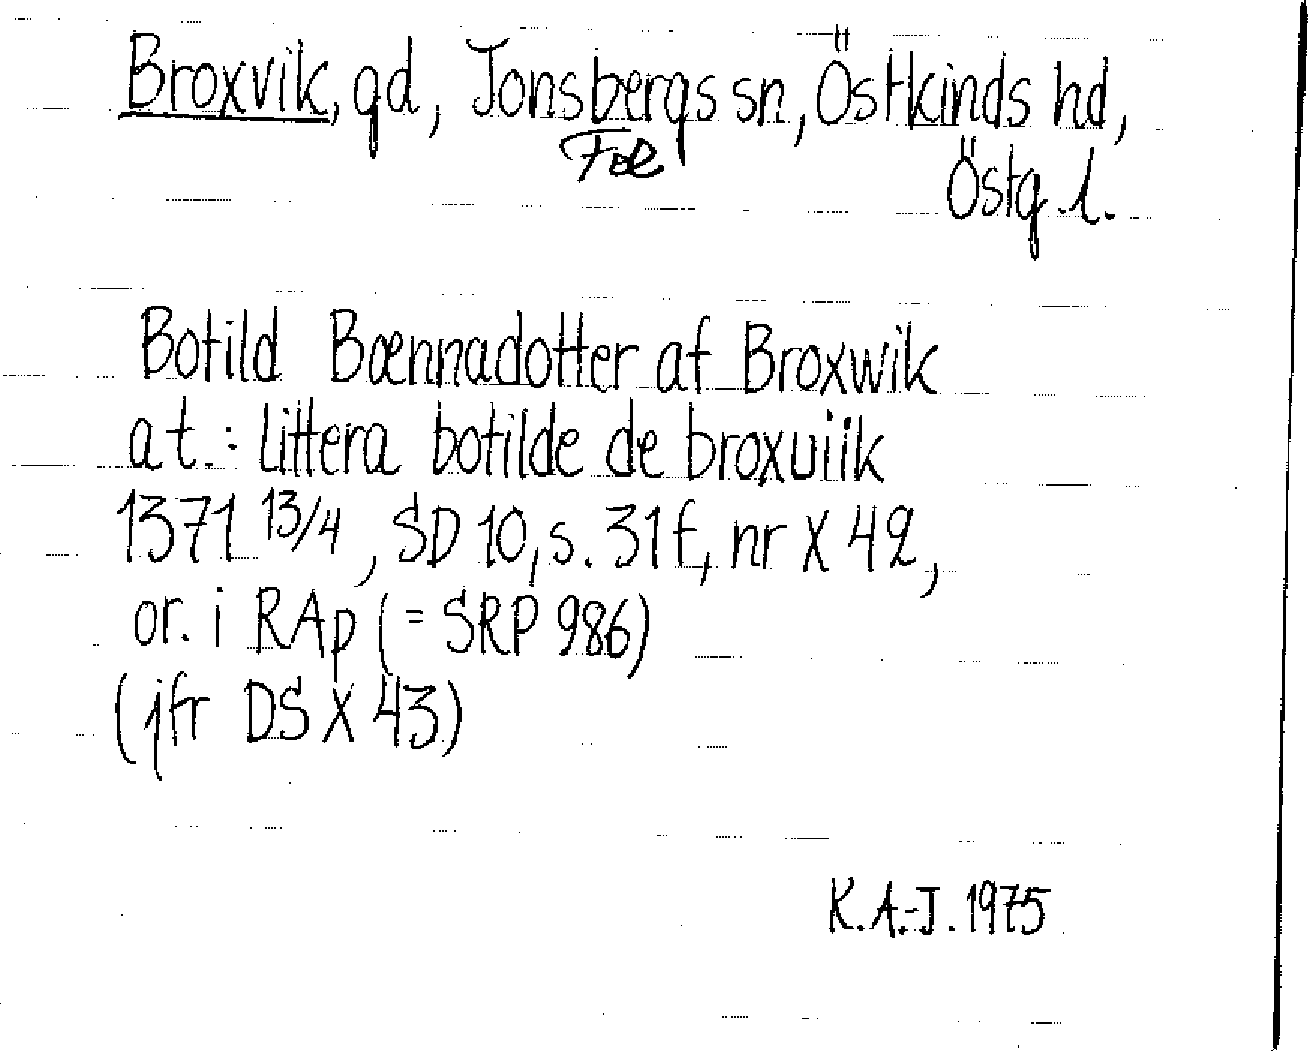 Broxvik, gd, Jonsbergs sn, Östkinds hd,
Östg. l.
Botild Bænnadotter af Broxwik
at.: littera botilde de broxuiik
1371 13/4, SD 10, s. 31 f, nr X 42,
or. i RAp (= SRP 986)
(jfr DS X 43)
K. A.-J. 1975